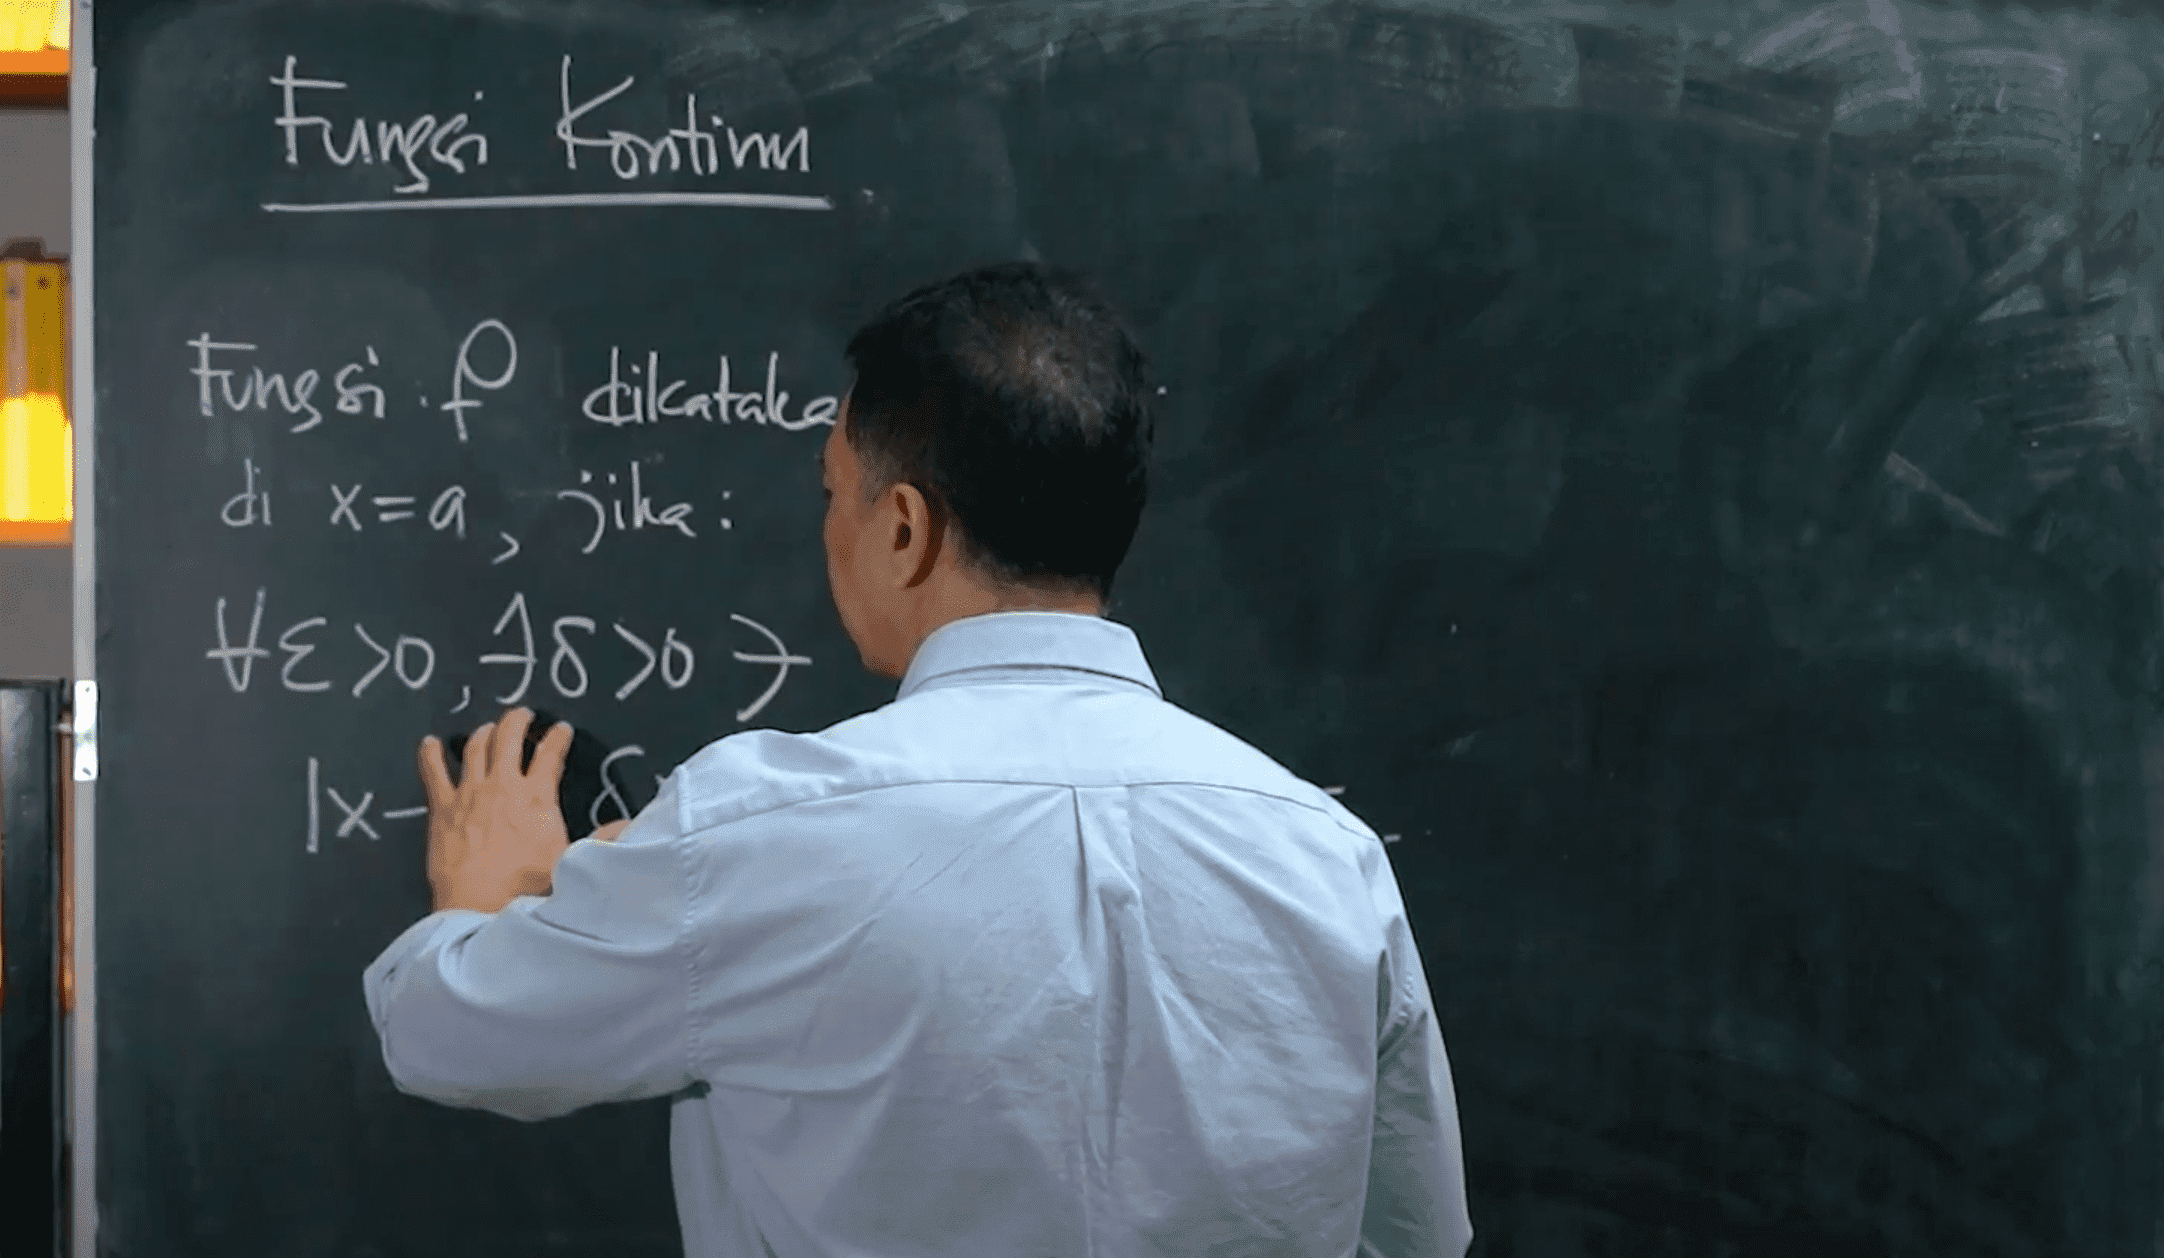 Fungsi Kontinu
Fungsi f dikataka
di x=a, jika:
∀ε>0, ∃δ>0 ∋
|x- δ